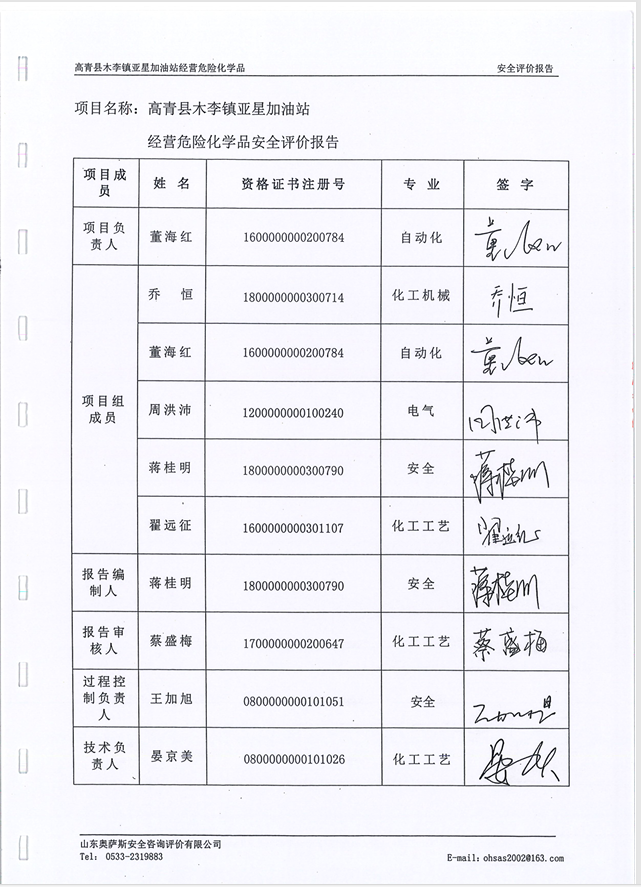 高青县木李镇亚星加油站经营危险化学品 安全评价报告
项目名称：高青县木李镇亚星加油站
经营危险化学品安全评价报告
项目成员 姓 名 资格证书注册号 专 业 签 字
项目负责人 董海红 1600000000200784 自动化
项目组成员 乔 恒 1800000000300714 化工机械 乔恒
董海红 1600000000200784 自动化
周洪沛 1200000000100240 电气 周洪沛
蒋桂明 1800000000300790 安全 蒋桂明
翟远征 1600000000301107 化工工艺 翟远征
报告编制人 蒋桂明 1800000000300790 安全 蒋桂明
报告审核人 蔡盛梅 1700000000200647 化工工艺 蔡盛梅
过程控制负责人 王加旭 0800000000101051 安全
技术负责人 晏京美 0800000000101026 化工工艺
山东奥萨斯安全咨询评价有限公司
Tel: 0533-2319883 E-mail：ohsas2002@163.com